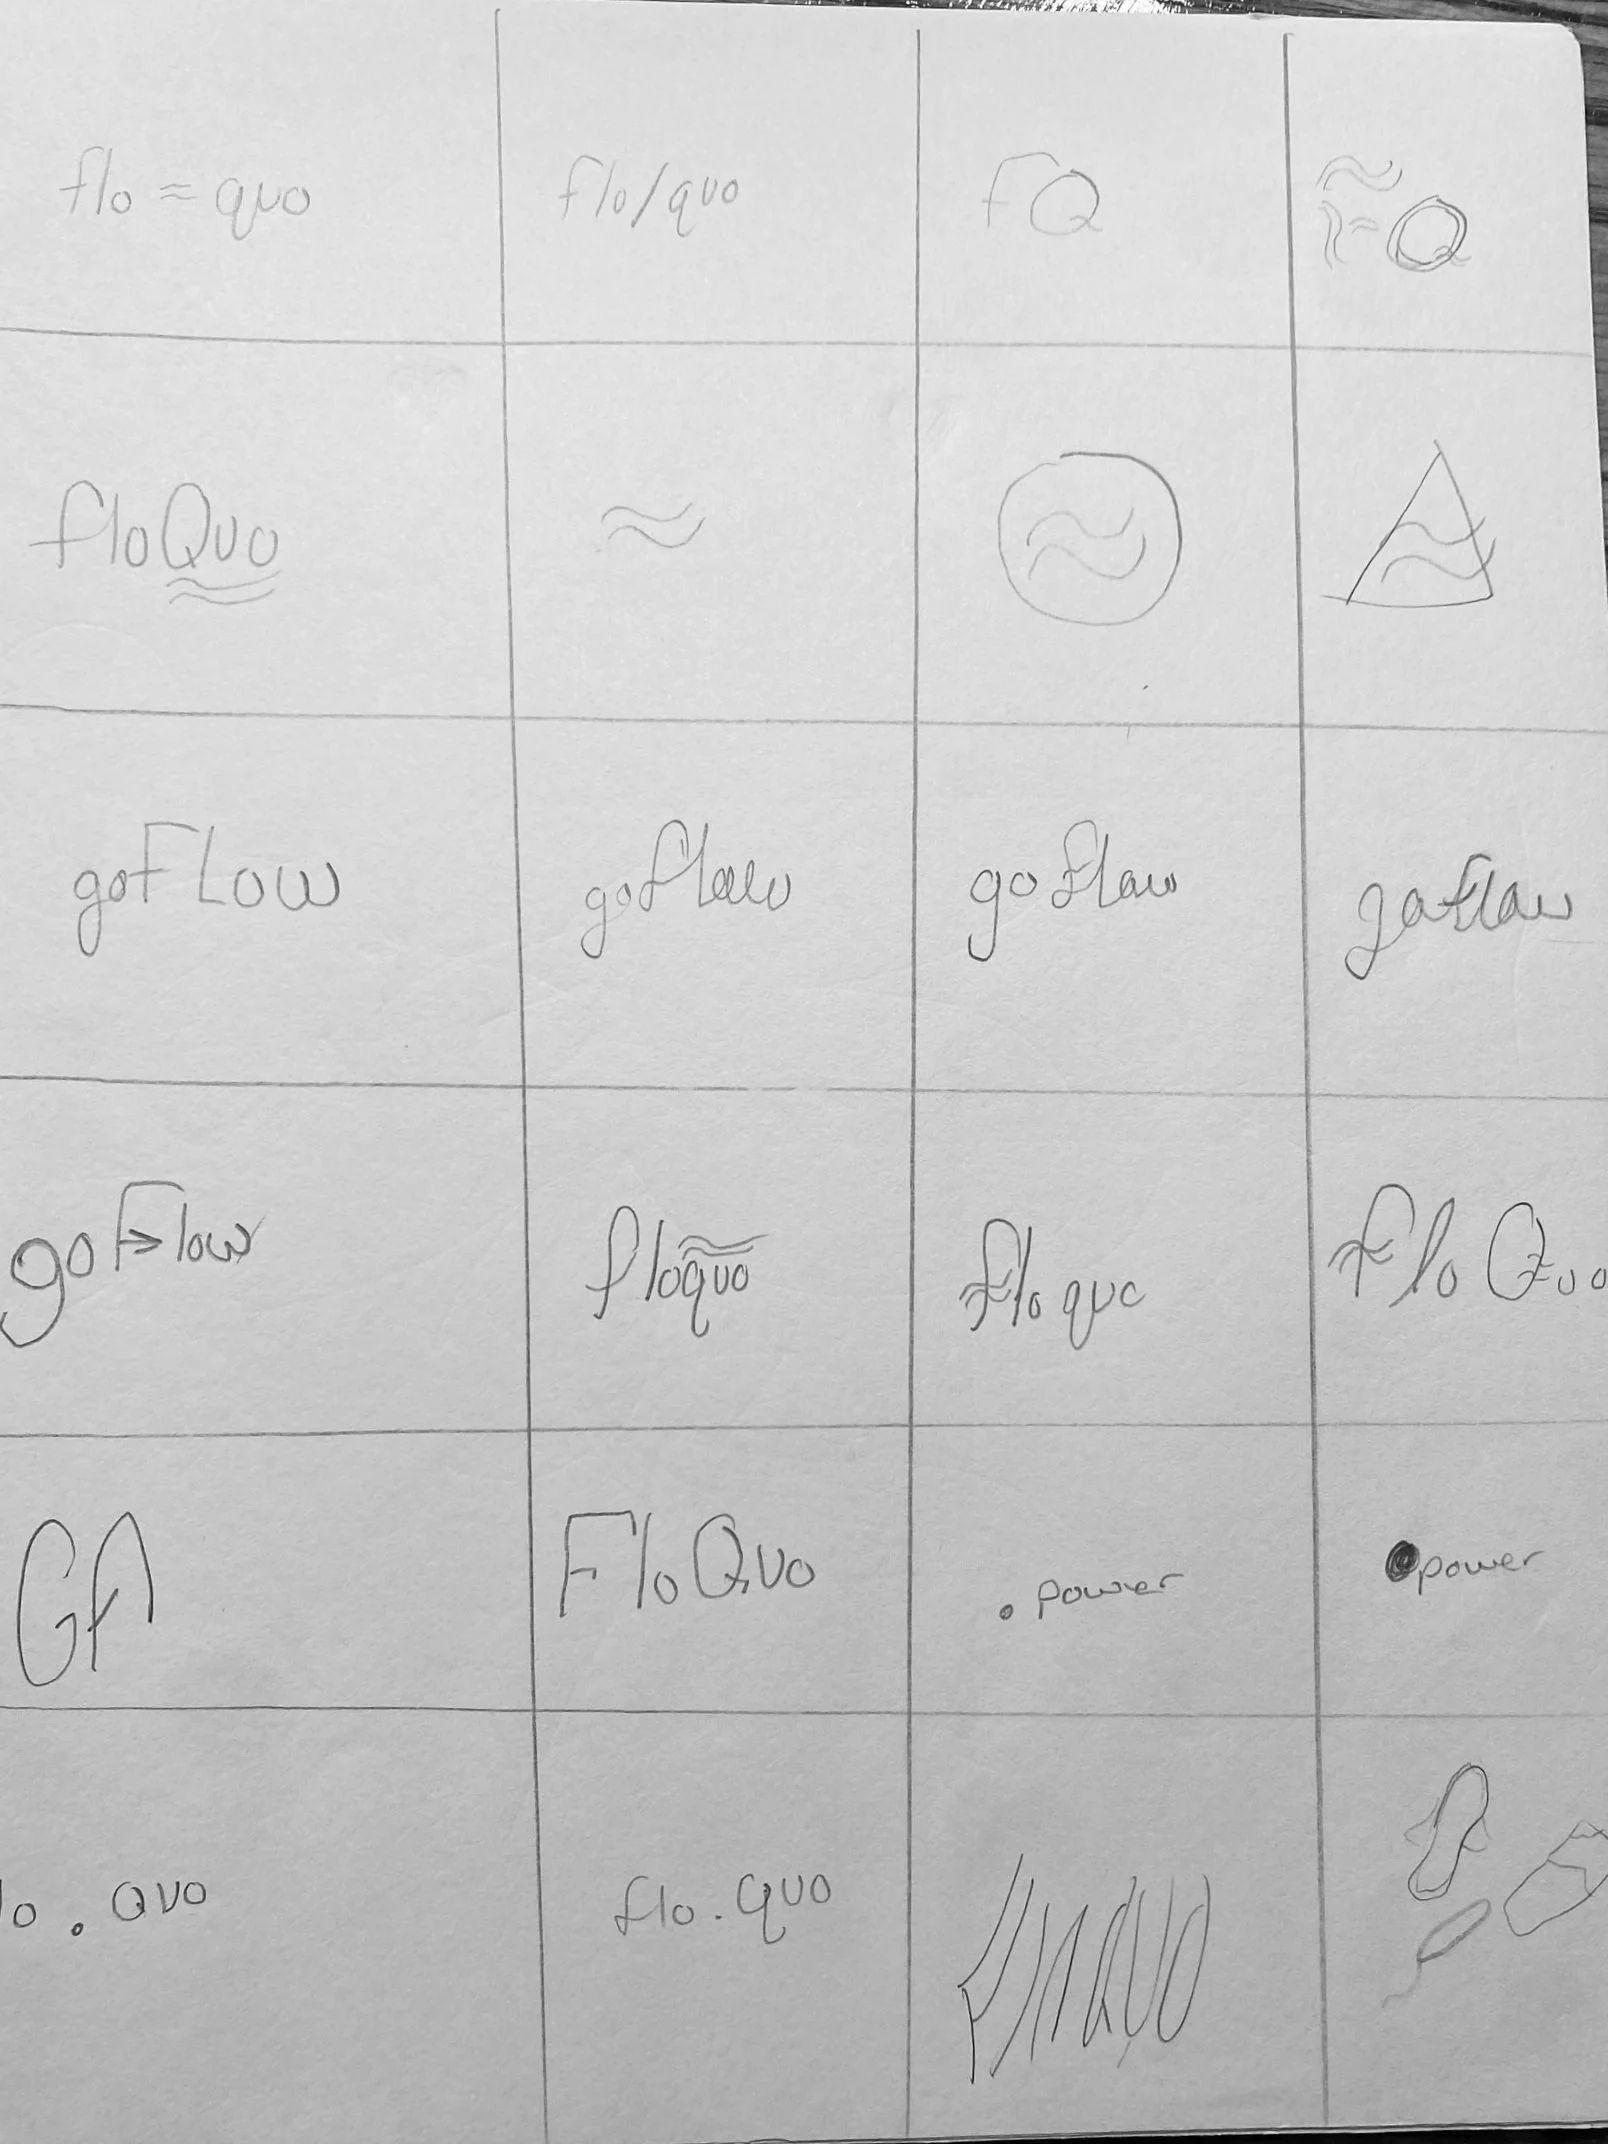 flo ≈ quo
flo/quo
FQ
FQ
floQuo
≈
≈
≈
goFLow
goflow
go flow
goflow
goFlow
floquo
flo quo
Flo Quo
GA
FloQuo
. power
•power
lo . Quo
flo . quo